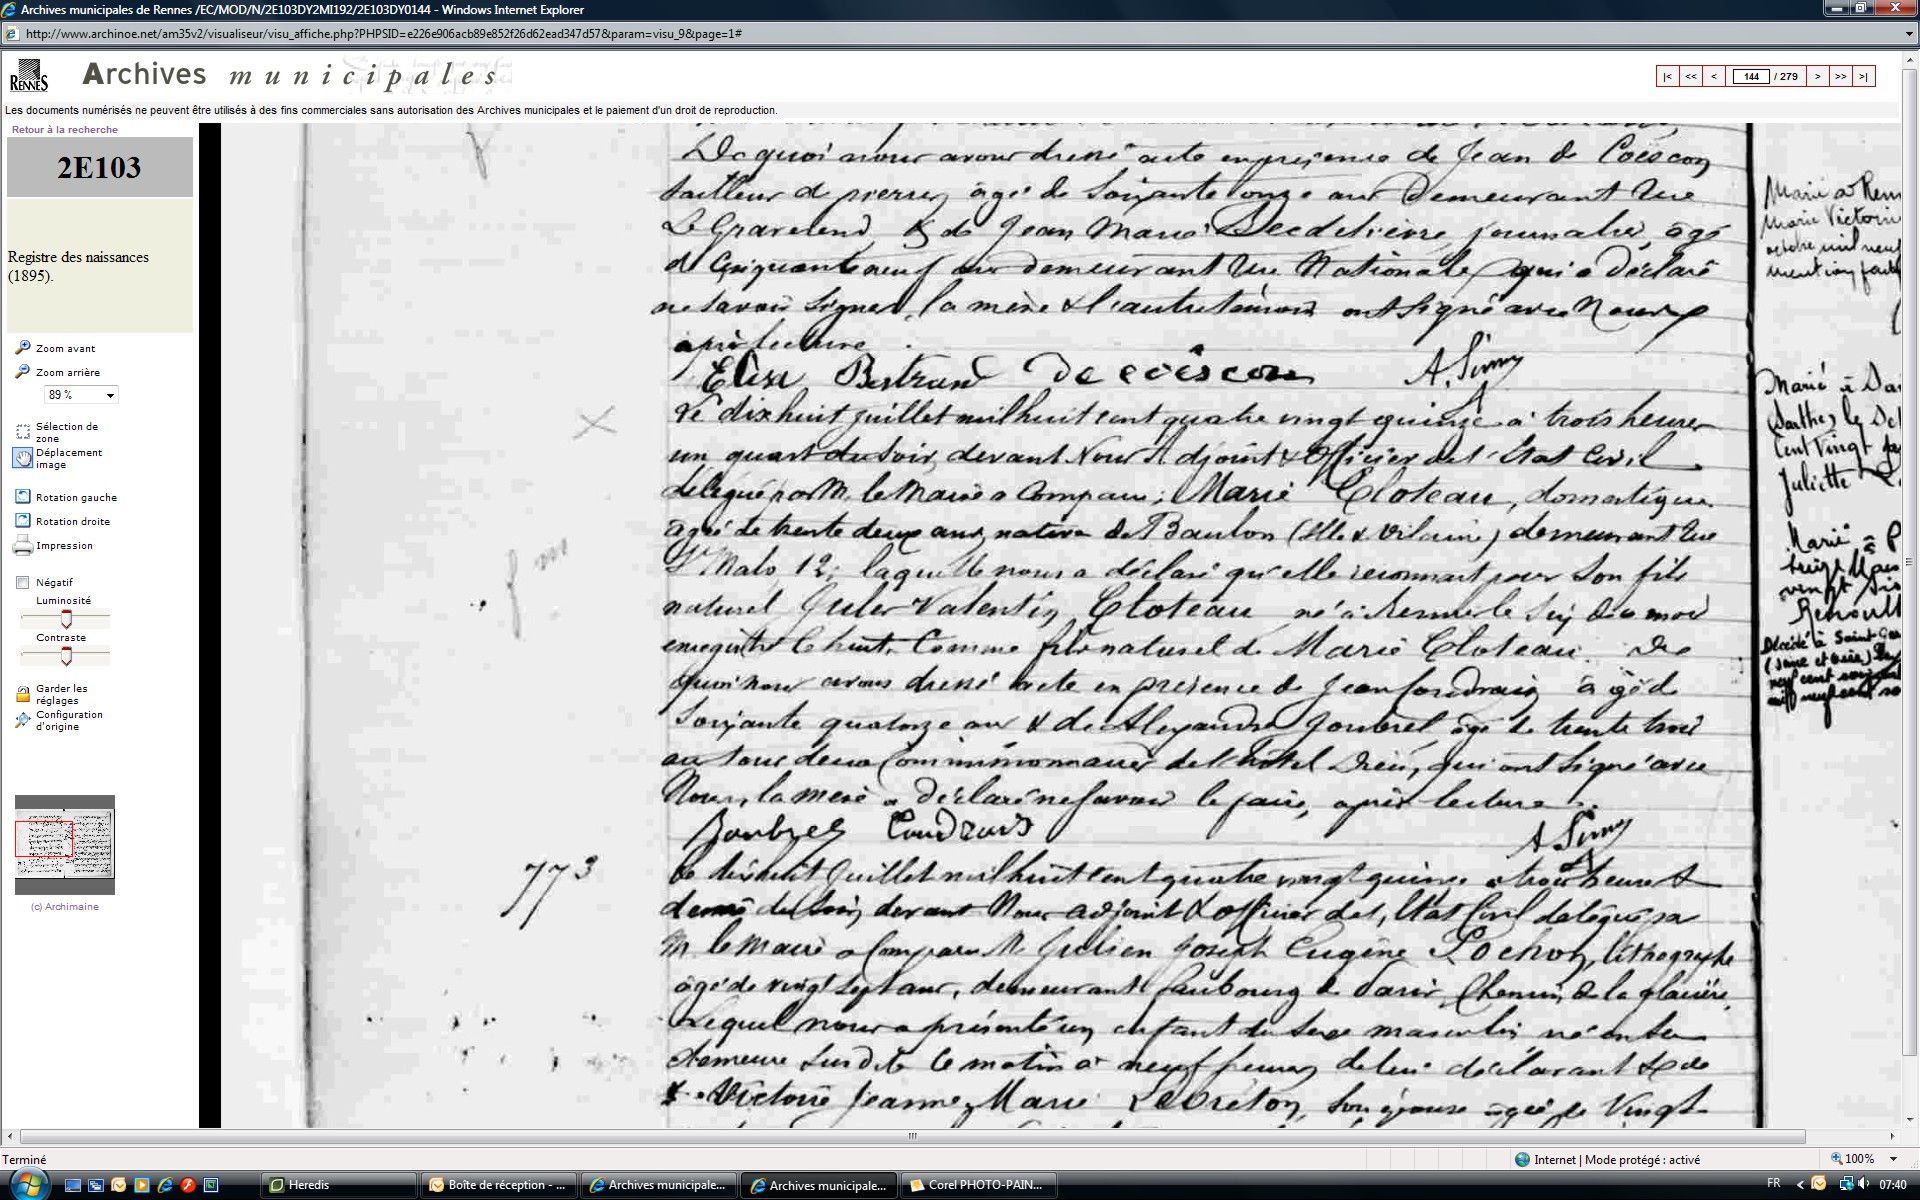 Archives municipales de Rennes /EC/MOD/N/2E103DY2MI192/2E103DY0144 - Windows Internet Explorer
http://www.archinoe.net/am35v2/visualiseur/visu_affiche.php?PHPSID=e226e906acb89e852f26d62ead347d57&param=visu_9&page=1#
RENNES
Archives municipales
|< << < 144 / 279 > >> >|
Les documents numérisés ne peuvent être utilisés à des fins commerciales sans autorisation des Archives municipales et le paiement d'un droit de reproduction.
Retour à la recherche
2E103
Registre des naissances
(1895).
Zoom avant
Zoom arrière
89 %
Sélection de
zone
Déplacement
image
Rotation gauche
Rotation droite
Impression
Négatif
Luminosité
Contraste
Garder les
réglages
Configuration
d'origine
(c) Archimaine
De quoi nous avons dressé acte en présence de Jean de Coëscon
tailleur de pierres, âgé de soixante onze ans demeurant rue
Le Graverend, & de Jean Marie journalier, âgé
de cinquante neuf ans demeurant rue Nationale, qui a déclaré
ne savoir signer, la mère & l'autre témoin ont signé avec Nous
après lecture.
Elise Bertrand De coëscon
Le dix huit juillet mil huit cent quatre vingt quinze à trois heures
un quart du soir, devant Nous Adjoint & Officier de l'Etat Civil
délégué par M. le Maire a comparu : Marie Cloteau, domestique
âgée de trente deux ans, native de Baulon (Ille & Vilaine) demeurant rue
St Malo 12, laquelle nous a déclaré qu'elle reconnait pour son fils
naturel Jules Valentin Cloteau né à Rennes le six de ce mois
enregistré le huit, comme fils naturel de Marie Cloteau. De
quoi nous avons dressé acte en présence de Jean Coudrais âgé de
soixante quatorze ans & de Alexandre Joubrel âgé de trente trois
ans tous deux commissionnaires de l'hôtel Dieu, qui ont signé avec
Nous, la mère a déclaré ne savoir le faire, après lecture.
Joubrel Coudrais
773
Le dix huit juillet mil huit cent quatre vingt quinze à trois heures &
demie du soir, devant Nous adjoint & officier de l'Etat Civil délégué par
M. le Maire a comparu M. Julien Joseph Eugène Pochon, lithographe
âgé de vingt sept ans, demeurant faubourg de Paris, Chemin de la glacière,
Lequel nous a présenté un enfant du sexe masculin, né en sa
demeure susdite ce matin à neuf heures, de lui déclarant & de
Victoire Jeanne Marie Lebreton, son épouse âgée de vingt
Marie Victorine
mention
Marié à
(Sarthe) le
cent vingt
Juliette
Marié à P
treize
vingt
Renoult
Décédé à Saint
Terminé
Internet | Mode protégé : activé
100%
Heredis
Boîte de réception - ...
Archives municipale...
Archives municipale...
Corel PHOTO-PAIN...
FR
07:40